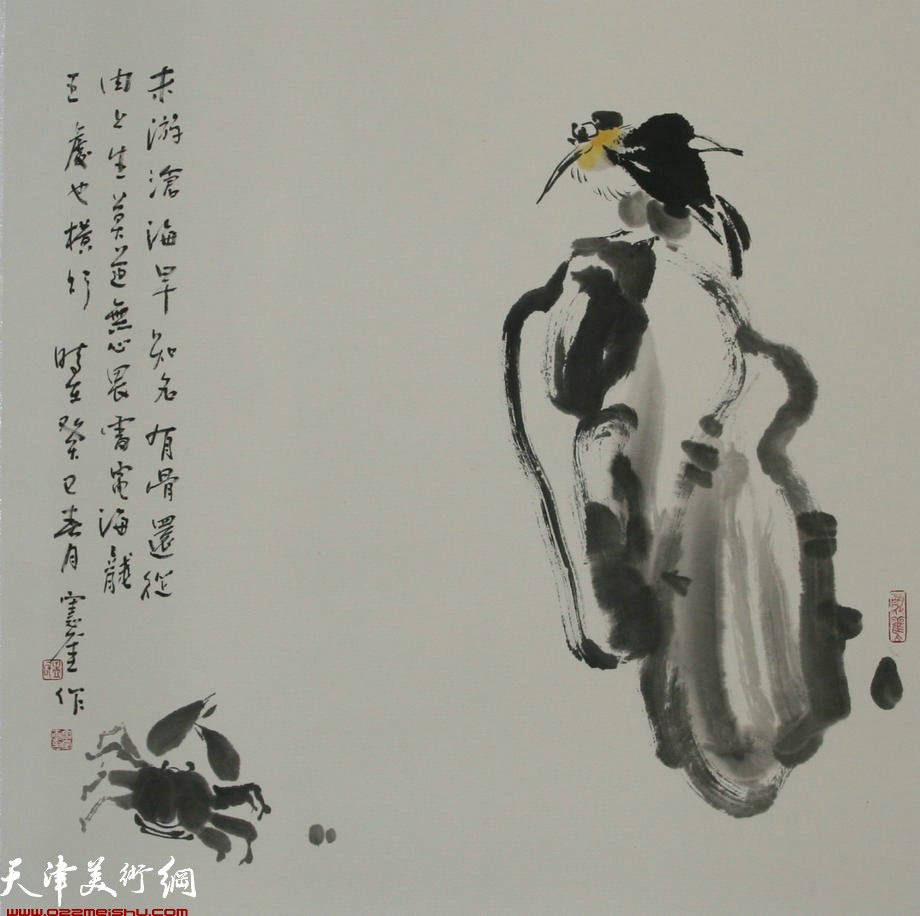 未游滄海早知名有骨還從
肉上生莫道無心畏雷電海龍
王處也横行 時在癸巳春月 憲奎作
天津美術網
www.022meishu.com